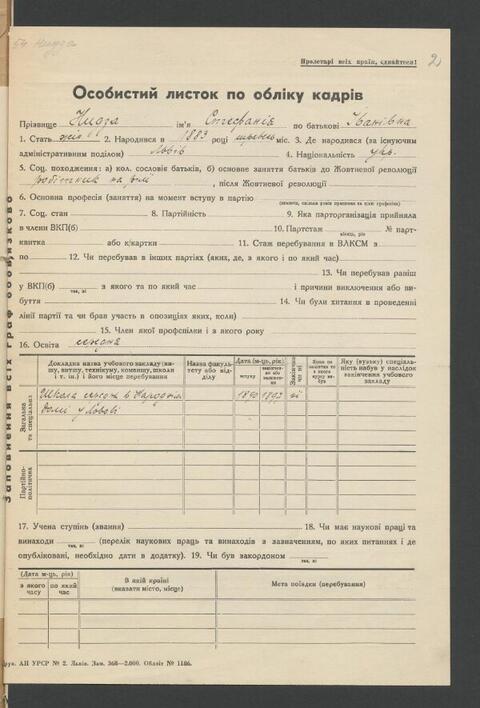 2
Пролетарі всіх країн, єднайтеся!
Особистий листок по обліку кадрів
Прізвище Нидза ім'я Стефанія по батькові Іванівна
1. Стать жін 2. Народився в 1883 році червень міс. 3. Де народився (за існуючим
адміністративним поділом) Львів 4. Національність укр.
5. Соц. походження: а) кол. сословіє батьків, б) основне заняття батьків до Жовтневої революції
робітник на , після Жовтневої революції
6. Основна професія (заняття) на момент вступу в партію
7. Соц. стан 8. Партійність 9. Яка парторганізація прийняла
в члени ВКП(б) 10. Партстаж № парт-
місяць, рік
квитка або к/картки 11. Стаж перебування в ВЛКСМ з
по 12. Чи перебував в інших партіях (яких, де, з якого і по який час)
13. Чи перебував раніш
у ВКП(б) з якого та по який час і причини виключення або ви-
так, ні
буття 14. Чи були хитання в проведенні
лінії партії та чи брав участь в опозиціях яких, коли)
15. Член якої профспілки і з якого року
16. Освіта
Докладна назва учбового закладу (ви-
шу, втишу, технікуму, комвишу, школи
і т. ін.) і його місце перебування
Назва факуль-
тету або від-
ділу
Дата (м-ць, рік)
вступу
Яку (вузьку) спеціаль-
ність набув у наслідок
закінчення учбового
закладу
Загальна
та спеціальна
Школа в Народнім
домі у Львові
1890 1893 ні
Партійно-
політична
Заповнення всіх граф обов'язково
17. Учена ступінь (звання) 18. Чи має наукові праці та
винаходи (перелік наукових праць та винаходів з зазначенням, по яких питаннях і де
так, ні
опубліковані, необхідно дати в додатку). 19. Чи був закордоном
так, ні
(Дата м-ць, рік)
з якого
часу
по який
час
В якій країні
(вказати місто, місце)
Мета поїздки (перебування)
Друк. АН УРСР № 2. Львів. Зам. 368—2.000. Обліт № 1186.